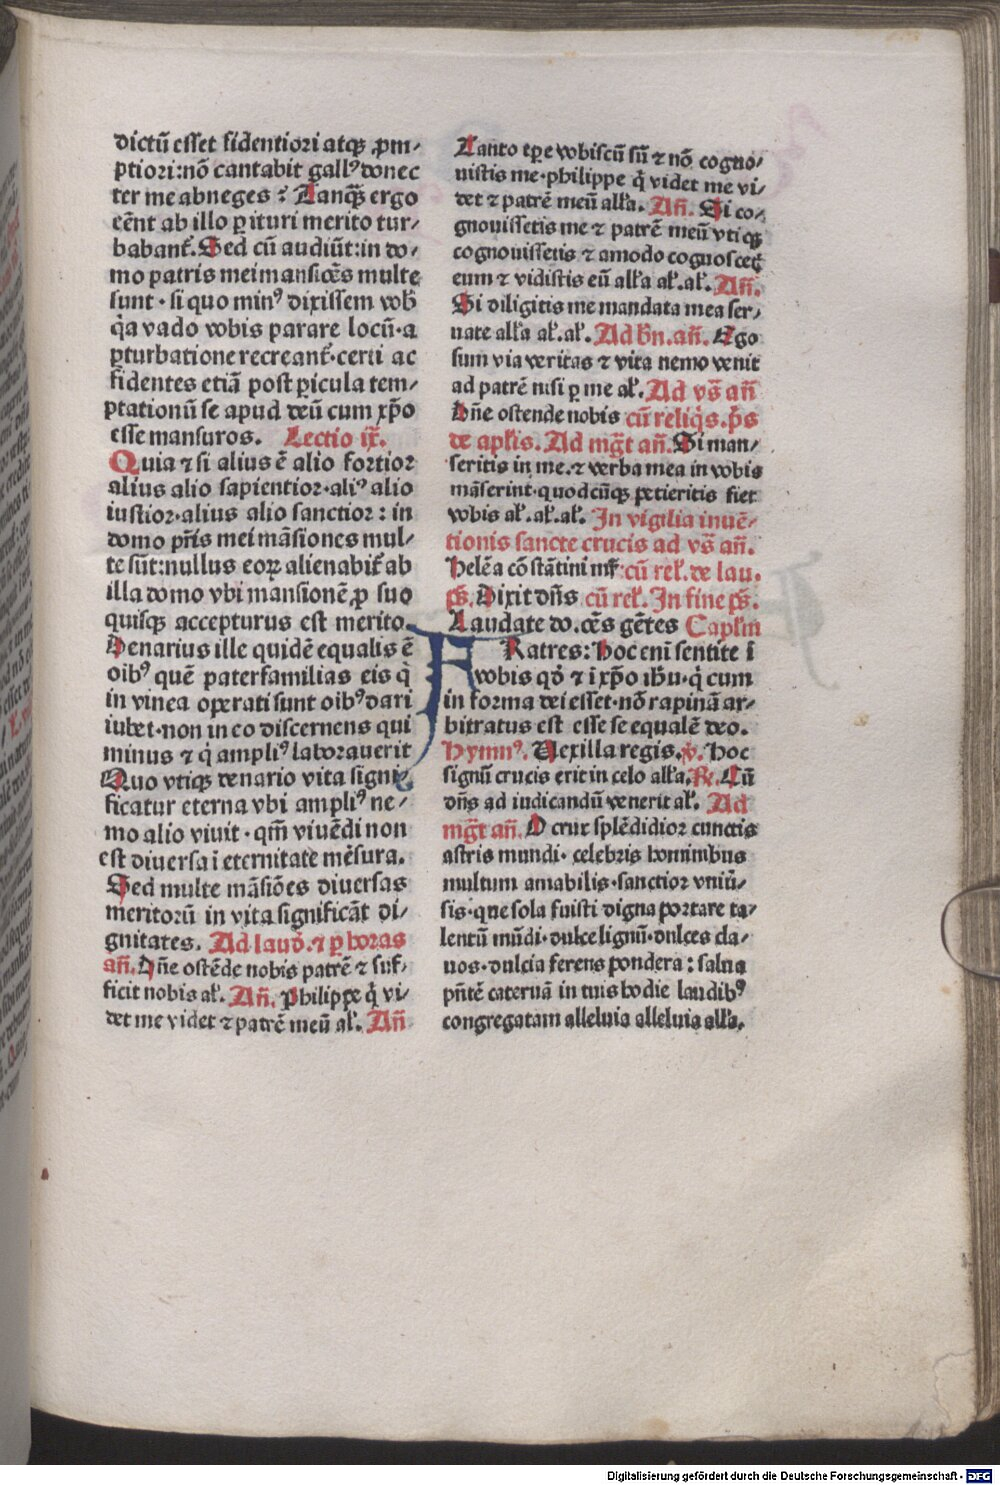 dictū esset fidentiori atqꝫ ꝓm-
ptiori: nō cantabit gallꝰ donec
ter me abneges? Tanqꝫ ergo
eēnt ab illo ꝑituri merito tur-
babant̄. Sed cū audiūt: in do-
mo patris mei mansiōēs multe
sunt · si quo minꝰ dixissem vob̄
q̇a vado vobis parare locū · a
ꝑturbatione recreant̄ · certi ac
fidentes etiā post ꝑicula tem-
ptationū se apud deū cum xp̄o
esse mansuros. Lectio ix̄.
Quia ⁊ si alius ē alio fortior
alius alio sapientior · aliꝰ alio
iustior · alius alio sanctior: in
domo pr̄is mei māsiones mul-
te sūt: nullus eoꝝ alienabit̄ ab
illa domo vbi mansionē ꝓ suo
quisqꝫ accepturus est merito.
Denarius ille quidē equalis ē
oibꝰ quē paterfamilias eis q̇
in vinea operati sunt oibꝰ dari
iubet · non in eo discernens qui
minus ⁊ q̇ ampliꝰ laborauerit
Quo vtiqꝫ denario vita signi-
ficatur eterna vbi ampliꝰ ne-
mo alio viuit · qm̄ viuēdi non
est diuersa ī eternitate mēsura.
Sed multe māsiōes diuersas
meritorū in vita significāt di-
gnitates. Ad laud̄. ⁊ ꝑ horas
an̄. Dn̄e ostēde nobis patrē ⁊ suf-
ficit nobis al̄. An̄. Philippe q̇ vi-
det me videt ⁊ patrē meū al̄. An̄
Tanto tꝑe vobiscū sū ⁊ nō cogno-
uistis me · philippe q̇ videt me vi-
det ⁊ patrē meū all̄a. An̄. Si co-
gnouissetis me ⁊ patrē meū vtiqꝫ
cognouissetis ⁊ amodo cognoscet̄
eum ⁊ vidistis eū all̄a al̄. al̄. An̄.
Si diligitis me mandata mea ser-
uate all̄a al̄. al̄. Ad bn̄. an̄. Ego
sum via veritas ⁊ vita nemo venit
ad patrē nisi ꝑ me al̄. Ad vs̄ an̄
Dn̄e ostende nobis cū reliq̇s. p̄s
de apl̄is. Ad mḡt an̄. Si man-
seritis in me. ⁊ verba mea in vobis
māserint · quodcūqꝫ petieritis fiet
vobis al̄. al̄. al̄. In vigilia inuē-
tionis sancte crucis ad vs̄ an̄.
Helēa cōstātini mr̄ cū rel̄. de lau.
ps̄. Dixit dn̄s cū rel̄. In fine ps̄.
Laudate do. oēs gētes Capl̄m
FRatres: hoc enī sentite ī
vobis qd̄ ⁊ ī xp̄o ih̄u · q̇ cum
in forma dei esset · nō rapinā ar-
bitratus est esse se equalē deo.
Hymnꝰ. Uexilla regis. v̄. Hoc
signū crucis erit in celo all̄a. R̄. Cū
dn̄s ad iudicandū venerit al̄. Ad
mḡt an̄. O crux splēdidior cunctis
astris mundi · celebris hominibus
multum amabilis · sanctior vniū-
sis · que sola fuisti digna portare ta-
lentū mūdi · dulce lignū · dulces cla-
uos · dulcia ferens pondera: salua
pn̄tē cateruā in tuis hodie laudibꝰ
congregatam alleluia alleluia all̄a.
Digitalisierung gefördert durch die Deutsche Forschungsgemeinschaft - DFG